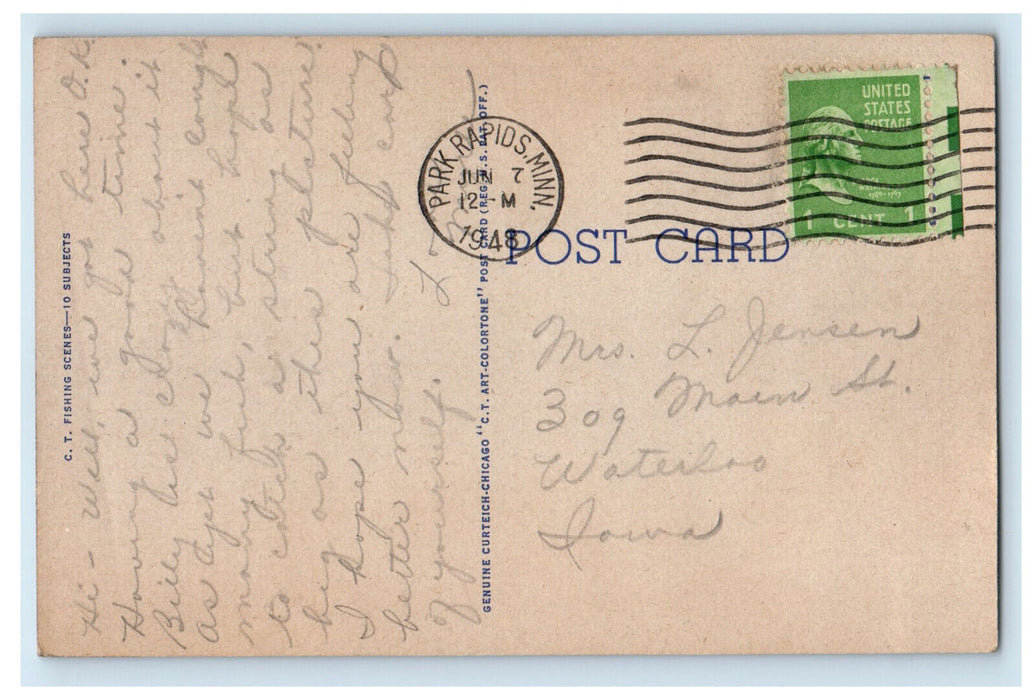 C. T. FISHING SCENES—10 SUBJECTS
Hi - Well, we got here O.K.
Having a good time.
Billy is crazy about it
as are we. Haven't caught
many fish, but hope
to catch a string as
big as this picture.
I hope you are feeling
better now. Take care
of yourself.
GENUINE CURTEICH-CHICAGO "C.T. ART-COLORTONE" POST CARD (REG. U.S. PAT. OFF.)
PARK RAPIDS, MINN.
JUN 7
12 - M
1948
UNITED
STATES
POSTAGE
1 CENT 1
POST CARD
Mrs. L. Jensen
309 Main St.
Waterloo
Iowa